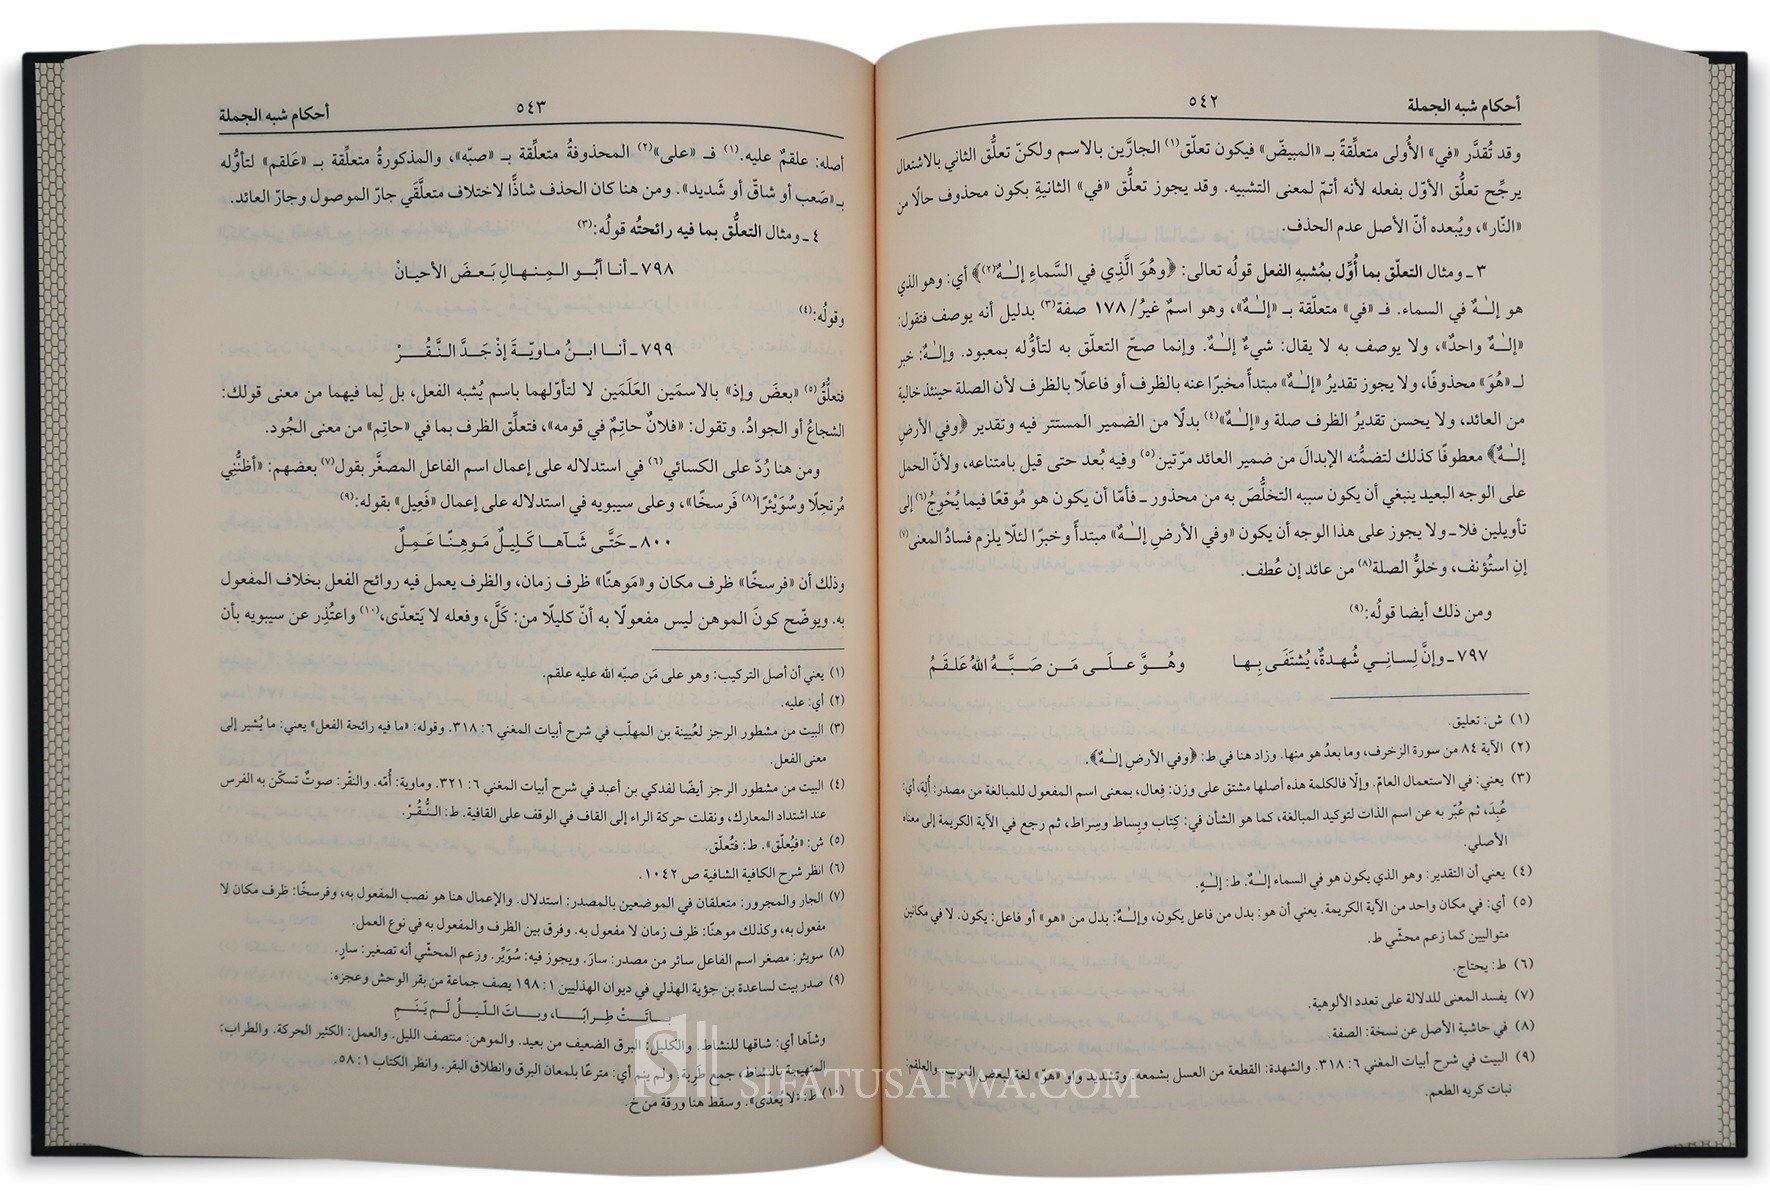 أحكام شبه الجملة
٥٤٢
وقد تُقدَّر «في» الأُولى متعلِّقةً بـ «المبيضّ» فيكون تعلّق(١) الجارَّين بالاسم ولكنّ تعلُّق الثاني بالاشتعال
يرجِّح تعلُّق الأوّل بفعله لأنه أتمّ لمعنى التشبيه. وقد يجوز تعلُّق «في» الثانيةِ بكون محذوف حالًا من
«النّار»، ويُبعده أنّ الأصل عدم الحذف.
٣ ـ ومثال التعلّق بما أُوِّل بمُشبهِ الفعل قولُه تعالى: ﴿وهُوَ الَّذِي في السَّماءِ إلـٰهٌ(٢)﴾ أي: وهو الذي
هو إلـٰهٌ في السماء. فـ «في» متعلّقة بـ «إلـٰهٌ»، وهو اسمٌ غيرُ/ ١٧٨ صفة(٣) بدليل أنه يوصف فتقول:
«إلـٰهٌ واحدٌ»، ولا يوصف به لا يقال: شيءٌ إلـٰهٌ. وإنما صحّ التعلّق به لتأوُّله بمعبود. وإلـٰهٌ: خبر
لـ «هُوَ» محذوفًا، ولا يجوز تقديرُ «إلـٰهٌ» مبتدأً مخبرًا عنه بالظرف أو فاعلًا بالظرف لأن الصلة حينئذ خالية
من العائد، ولا يحسن تقديرُ الظرف صلة و«إلـٰهٌ»(٤) بدلًا من الضمير المستتر فيه وتقدير ﴿وفي الأرضِ
إلـٰهٌ﴾ معطوفًا كذلك لتضمُّنه الإبدالَ من ضمير العائد مرّتين(٥) وفيه بُعد حتى قيل بامتناعه، ولأنّ الحمل
على الوجه البعيد ينبغي أن يكون سببه التخلُّصَ به من محذور ـ فأمّا أن يكون هو مُوقعًا فيما يُحْوِجُ(٦) إلى
تأويلين فلا ـ ولا يجوز على هذا الوجه أن يكون «وفي الأرضِ إلـٰهٌ» مبتدأً وخبرًا لئلّا يلزم فسادُ المعنى(٧)
إنِ استُؤنف، وخلوُّ الصلة(٨) من عائد إن عُطف.
ومن ذلك أيضا قولُه:(٩)
٧٩٧ ـ وإنَّ لِسانِي شُهدةٌ، يُشتَفَى بِها وهُوَّ علَى مَن صَبَّهُ اللهُ عَلقَمُ
(١) ش: تعليق.
(٢) الآية ٨٤ من سورة الزخرف، وما بعدُ هو منها. وزاد هنا في ط: ﴿وفي الأرضِ إلـٰهٌ﴾.
(٣) يعني: في الاستعمال العامّ. وإلّا فالكلمة هذه أصلها مشتق على وزن: فِعال، بمعنى اسم المفعول للمبالغة من مصدر: أُلِهَ، أي:
عُبِدَ، ثم عُبّر به عن اسم الذات لتوكيد المبالغة، كما هو الشأن في: كِتاب وبِساط وسِراط، ثم رجع في الآية الكريمة إلى معناه
الأصلي.
(٤) يعني أن التقدير: وهو الذي يكون هو في السماء إلـٰهٌ. ط: إلـٰهٍ.
(٥) أي: في مكان واحد من الآية الكريمة. يعني أن هو: بدل من فاعل يكون، وإلـٰهٌ: بدل من «هو» أو فاعل: يكون. لا في مكانين
متواليين كما زعم محشّي ط.
(٦) ط: يحتاج.
(٧) يفسد المعنى للدلالة على تعدد الألوهية.
(٨) في حاشية الأصل عن نسخة: الصفة.
(٩) البيت في شرح أبيات المغني ٦: ٣١٨. والشهدة: القطعة من العسل بشمعه. وتشديد واو «هو» لغة لبعض العرب. والعلقم:
نبات كريه الطعم.
أحكام شبه الجملة
٥٤٣
أصله: علقمٌ عليه.(١) فـ «على»(٢) المحذوفةُ متعلِّقة بـ «صبّه»، والمذكورةُ متعلِّقة بـ «عَلقم» لتأوُّله
بـ «صَعب أو شاقّ أو شَديد». ومن هنا كان الحذف شاذًّا لاختلاف متعلَّقَي جارّ الموصول وجارّ العائد.
٤ ـ ومثال التعلُّق بما فيه رائحتُه قولُه:(٣)
٧٩٨ ـ أنا أبُو المِنهالِ بَعضَ الأحيانْ
وقولُه:(٤)
٧٩٩ ـ أنا ابنُ ماويّةَ إذْ جَدَّ النَّقُرْ
فتعلُّقُ(٥) «بعضَ وإذ» بالاسمَين العَلَمَين لا لتأوّلهما باسم يُشبه الفعل، بل لِما فيهما من معنى قولك:
الشجاعُ أو الجوادُ. وتقول: «فلانٌ حاتِمٌ في قومه»، فتعلِّق الظرف بما في «حاتِم» من معنى الجُود.
ومن هنا رُدّ على الكسائي(٦) في استدلاله على إعمال اسم الفاعل المصغَّر بقول(٧) بعضهم: «أظنُّنِي
مُرتحِلًا وسُوَيْئرًا(٨) فَرسخًا»، وعلى سيبويه في استدلاله على إعمال «فَعِيل» بقوله:(٩)
٨٠٠ ـ حَتَّى شَآها كَلِيلٌ مَوهِنًا عَمِلٌ
وذلك أن «فرسخًا» ظرف مكان و«مَوهنًا» ظرف زمان، والظرف يعمل فيه روائح الفعل بخلاف المفعول
به. ويوضّح كونَ الموهن ليس مفعولًا به أنّ كليلًا من: كَلَّ، وفعله لا يَتعدّى،(١٠) واعتُذِر عن سيبويه بأن
(١) يعني أن أصل التركيب: وهو على مَن صبّه الله عليه علقم.
(٢) أي: عليه.
(٣) البيت من مشطور الرجز لعُيينة بن المهلّب في شرح أبيات المغني ٦: ٣١٨. وقوله: «ما فيه رائحة الفعل» يعني: ما يُشير إلى
معنى الفعل.
(٤) البيت من مشطور الرجز أيضًا لفدكي بن أعبد في شرح أبيات المغني ٦: ٣٢١. وماوية: أمّه. والنقْر: صوتٌ تسكّن به الفرس
عند اشتداد المعارك، ونقلت حركة الراء إلى القاف في الوقف على القافية. ط: النُّفُرْ.
(٥) ش: «فيُعلّق». ط: فتُعلّق.
(٦) انظر شرح الكافية الشافية ص ١٠٤٢.
(٧) الجار والمجرور: متعلقان في الموضعين بالمصدر: استدلال. والإعمال هنا هو نصب المفعول به، وفرسخًا: ظرف مكان لا
مفعول به، وكذلك موهنًا: ظرف زمان لا مفعول به. وفرق بين الظرف والمفعول به في نوع العمل.
(٨) سويئر: مصغر اسم الفاعل سائر من مصدر: سارَ. ويجوز فيه: سُوَيِّر. وزعم المحشّي أنه تصغير: سارٍ.
(٩) صدر بيت لساعدة بن جؤية الهذلي في ديوان الهذليين ١: ١٩٨ يصف جماعة من بقر الوحش وعجزه:
باتَتْ طِرابًا، وباتَ اللّيلُ لَم يَنَمِ
وشآها أي: شاقها للنشاط. والكليل: البرق الضعيف من بعيد. والموهن: منتصف الليل. والعمل: الكثير الحركة. والطراب:
المتهيجة بالنشاط، جمع طربة. ولم ينم أي: مترعًا بلمعان البرق وانطلاق البقر. وانظر الكتاب ١: ٥٨.
(١٠) ط: «لا يُعدّى». وسقط هنا ورقة من خ.
SIFATUSAFWA.COM